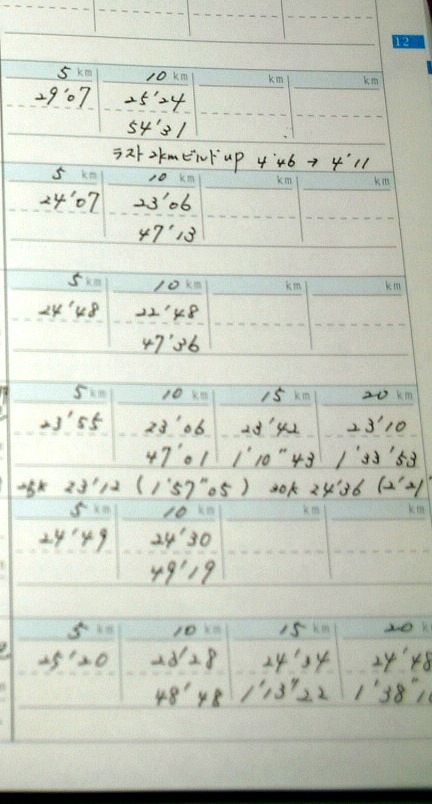 12
5 km 10 km km km
29'07 25'24
54'31
ラスト2kmビルドup 4'46 → 4'11
5 km 10 km km km
24'07 23'06
47'13
5 km 10 km km km
24'48 22'48
47'36
5 km 10 km 15 km 20 km
23'55 23'06 23'42 23'10
47'01 1'10"43 1'33'53
25k 23'12 (1'57"05) 30k 24'36 (2'21"
5 km 10 km km km
24'49 24'30
49'19
5 km 10 km 15 km 20 km
25'20 23'28 24'34 24'48
48'48 1'13"22 1'38"